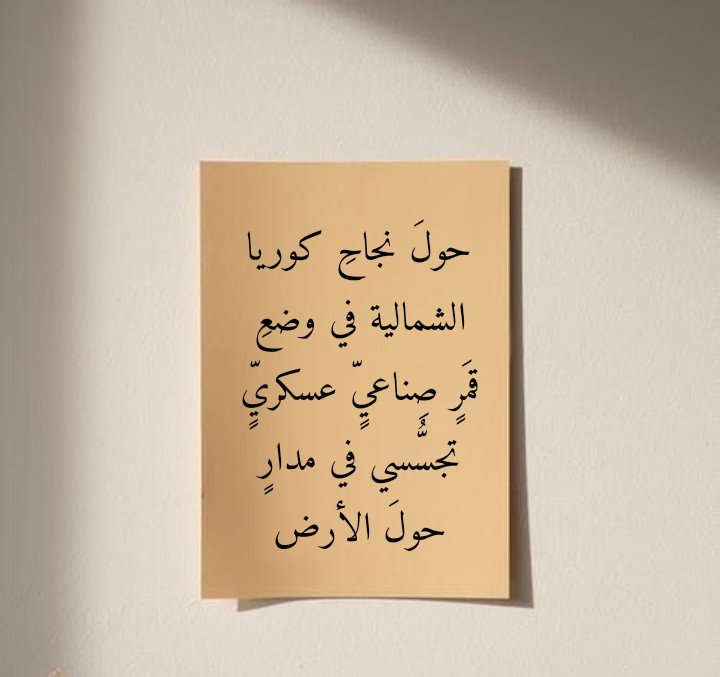 حولَ نجاحِ كوريا
الشمالية في وضعِ
قمَرٍ صِناعيٍّ عسكريٍّ
تجسُّسي في مدارٍ
حولَ الأرض